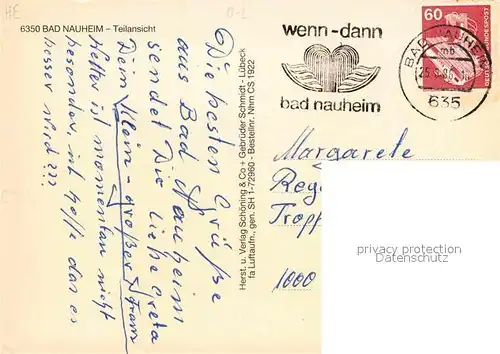 HE
D-2
6350 BAD NAUHEIM – Teilansicht
Die besten Grüße
aus Bad Nauheim
sendet Dir liebe Greta
Dein klein-großer Franz
Wetter ist momentan nicht
besonders, ich hoffe das es
besser wird???
Herst. u. Verlag Schöning & Co + Gebrüder Schmidt - Lübeck
fa Luftaufn., gen. SH 1-72960 - Bestellnr. Nhm CS 1922
wenn-dann
bad nauheim
60
DEUTSCHE BUNDESPOST
BAD NAUHEIM
mb
635
Margarete
Reg
Tropp
1000
privacy protection
Datenschutz